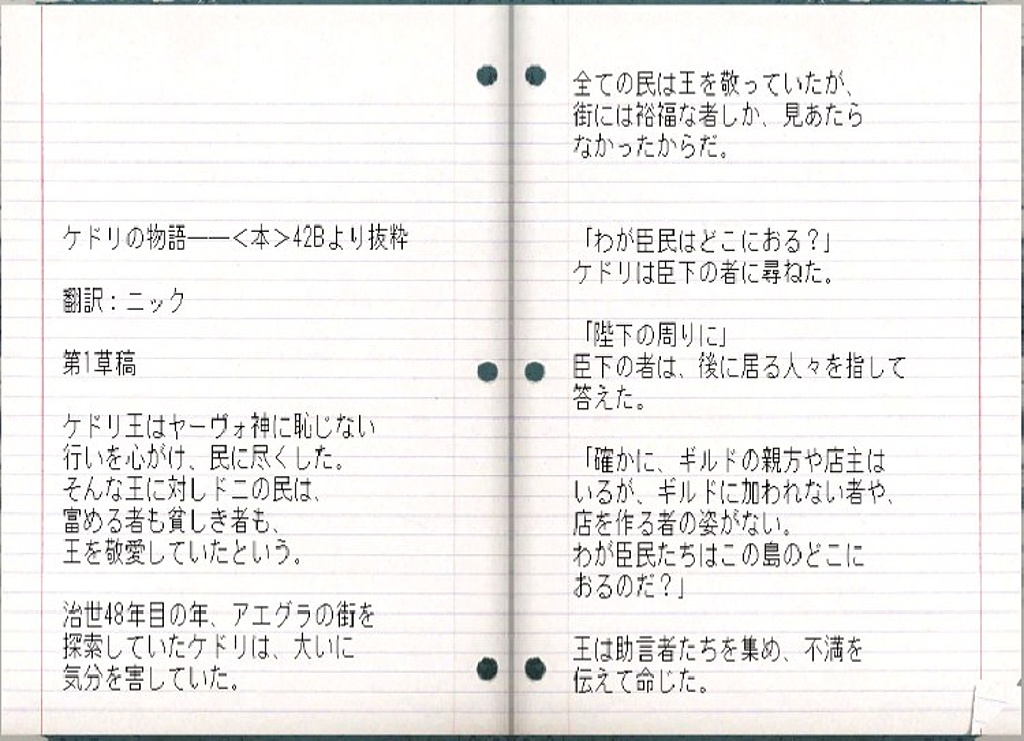 ケドリの物語――＜本＞42Bより抜粋
翻訳：ニック
第1草稿
ケドリ王はヤーヴォ神に恥じない
行いを心がけ、民に尽くした。
そんな王に対しドニの民は、
富める者も貧しき者も、
王を敬愛していたという。
治世48年目の年、アエグラの街を
探索していたケドリは、大いに
気分を害していた。
全ての民は王を敬っていたが、
街には裕福な者しか、見あたら
なかったからだ。
「わが臣民はどこにおる？」
ケドリは臣下の者に尋ねた。
「陛下の周りに」
臣下の者は、後に居る人々を指して
答えた。
「確かに、ギルドの親方や店主は
いるが、ギルドに加われない者や、
店を作る者の姿がない。
わが臣民たちはこの島のどこに
おるのだ？」
王は助言者たちを集め、不満を
伝えて命じた。